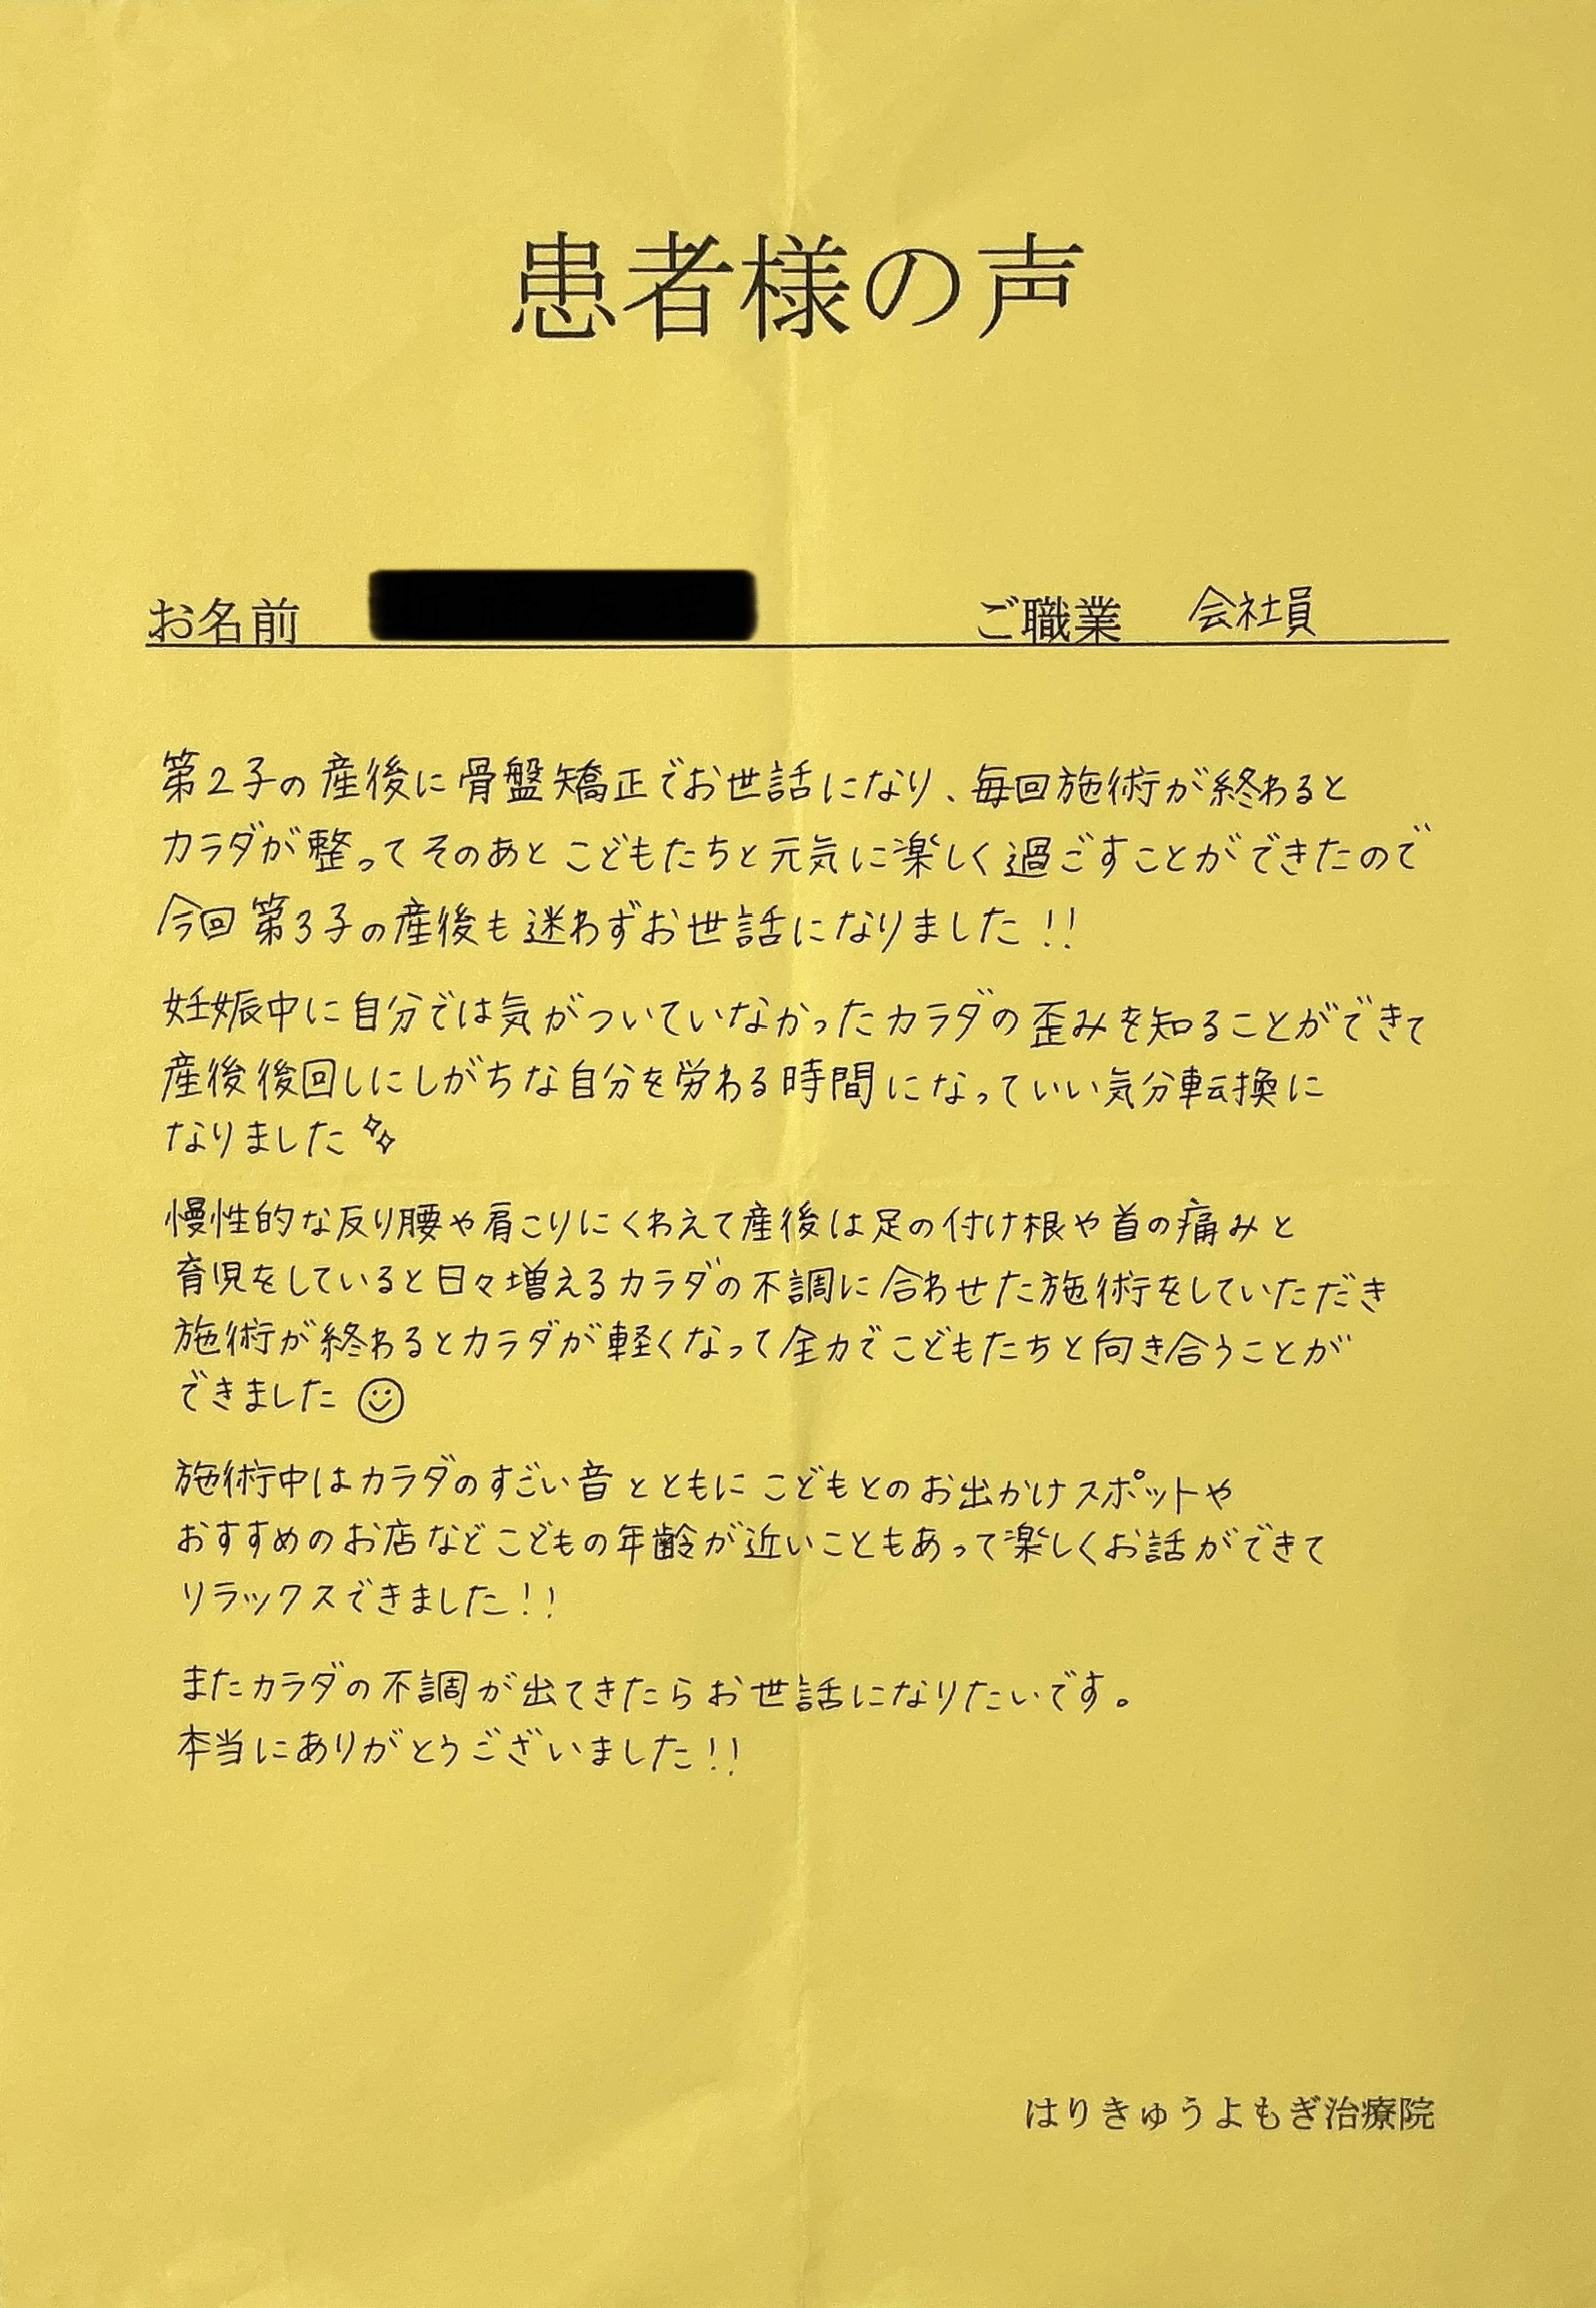 患者様の声
お名前 ご職業 会社員
第2子の産後に骨盤矯正でお世話になり、毎回施術が終わると
カラダが整ってそのあとこどもたちと元気に楽しく過ごすことができたので
今回第3子の産後も迷わずお世話になりました!!
妊娠中に自分では気がついていなかったカラダの歪みを知ることができて
産後後回しにしがちな自分を労わる時間になっていい気分転換に
なりました✨
慢性的な反り腰や肩こりにくわえて産後は足の付け根や首の痛みと
育児をしていると日々増えるカラダの不調に合わせた施術をしていただき
施術が終わるとカラダが軽くなって全力でこどもたちと向き合うことが
できました☺
施術中はカラダのすごい音とともにこどもとのお出かけスポットや
おすすめのお店などこどもの年齢が近いこともあって楽しくお話ができて
リラックスできました!!
またカラダの不調が出てきたらお世話になりたいです。
本当にありがとうございました!!
はりきゅうよもぎ治療院